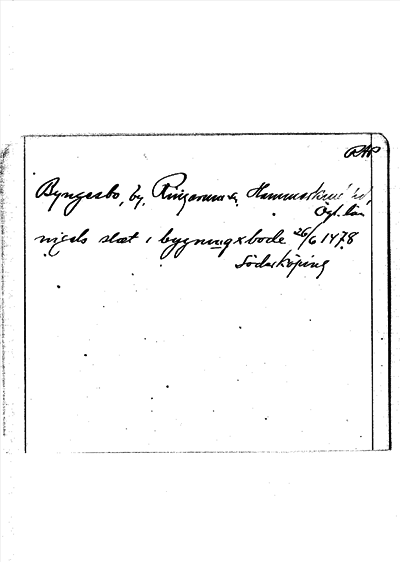 RAP
Byngesbo, by, Ringarums, Hammarkind hd,
Ögl. län
nigels slæt i bygningxbode 26/6 1478
Söderköping